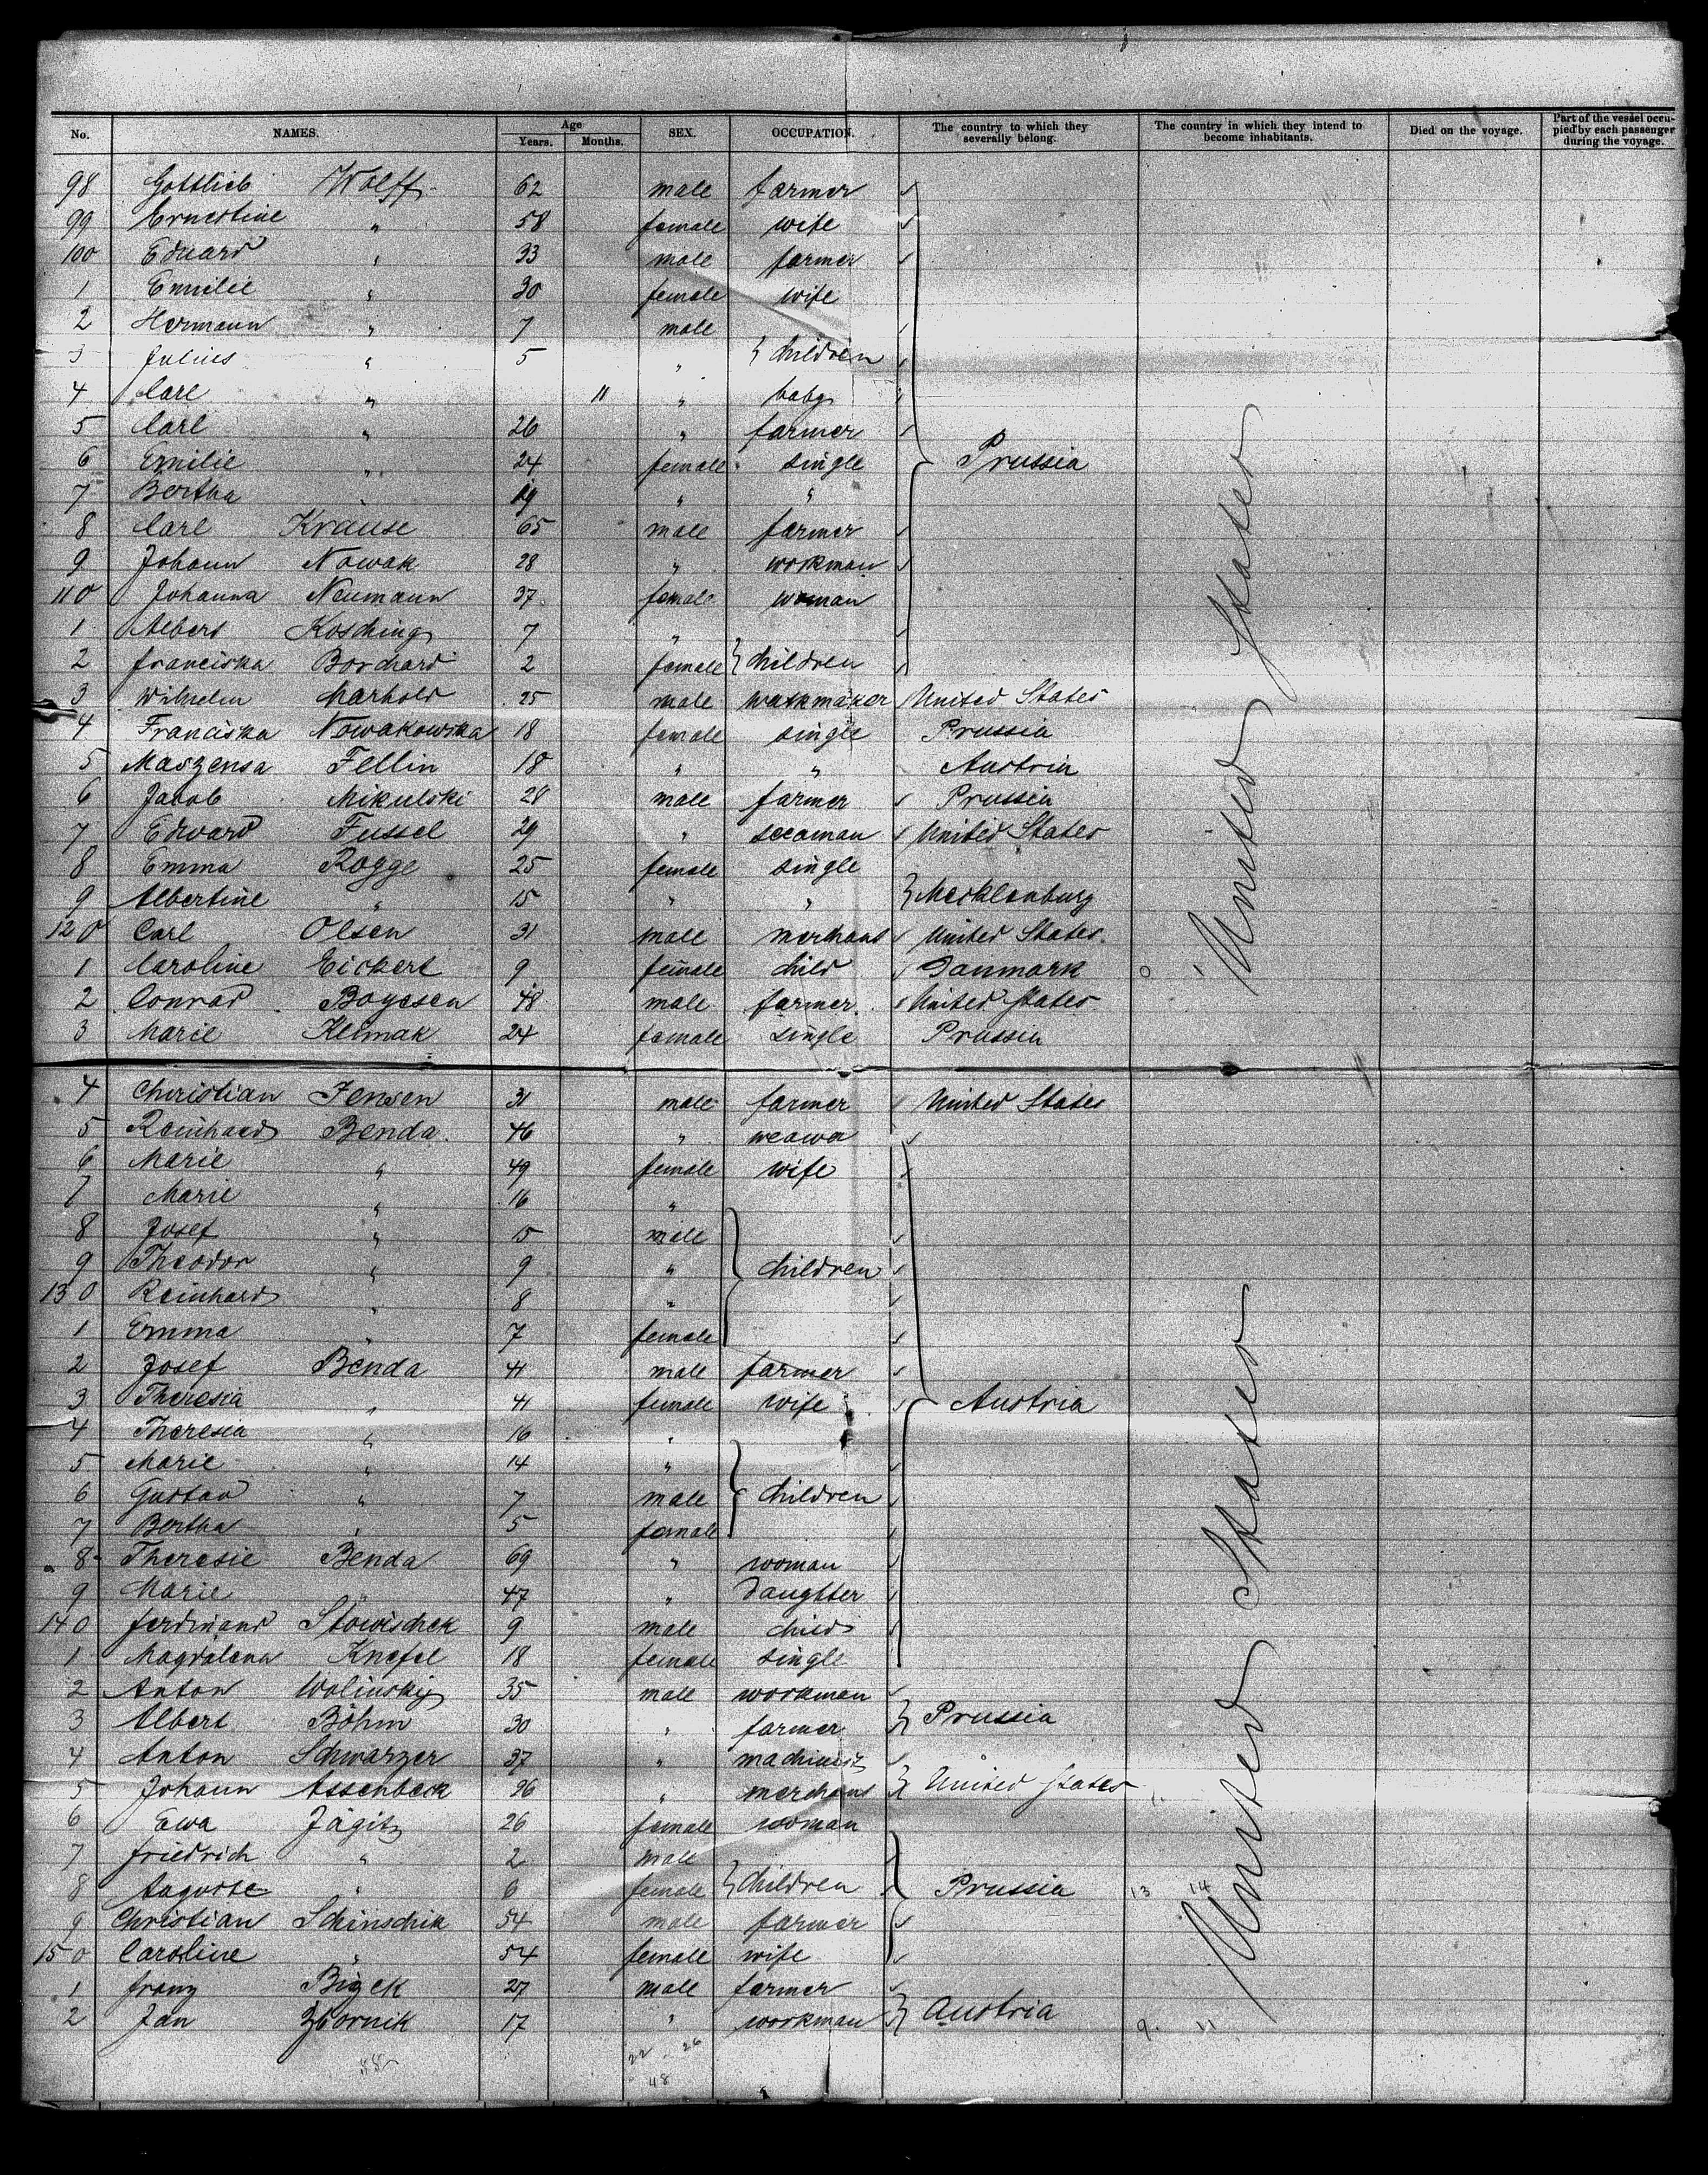 No. NAMES. Age Years. Months. SEX. OCCUPATION. The country to which they severally belong. The country in which they intend to become inhabitants. Died on the voyage. Part of the vessel occupied by each passenger during the voyage.
98 Gottlieb Wolff 62 male farmer
99 Ernestine " 58 female wife
100 Eduard " 33 male farmer
1 Emilie " 30 female wife
2 Hermann " 7 male
3 Julius " 5 " } children
4 Carl " 11 " baby
5 Carl " 26 " farmer
6 Emilie " 24 female single Prussia
7 Bertha " 19 " "
8 Carl Krause 65 male farmer
9 Johann Nowak 28 " workman
110 Johanna Neumann 37 female woman
1 Albert Kosching 7 "
2 Franciska Borchard 2 female } children
3 Wilhelm Marhold 25 male watkmaker United States
4 Franciska Nowakowska 18 female single Prussia
5 Maszensa Fellin 18 " " Austria
6 Jacob Mikulski 28 male farmer Prussia
7 Edward Fussel 29 " seeaman United States
8 Emma Rogge 25 female single
9 Albertine " 15 " " } Mecklenburg
120 Carl Olsen 31 male merchant United States.
1 Caroline Eickert 9 female child Danmark
2 Conrad Boyesen 48 male farmer United States
3 Marie Kelmak 24 female single Prussia
United States
4 Christian Jensen 31 male farmer United States
5 Reinhard Benda 46 " weawer
6 Marie " 49 female wife
7 Marie " 16 "
8 Josef " 15 male
9 Theodor " 9 " children
130 Reinhard " 8 "
1 Emma " 7 female
2 Josef Benda 41 male farmer
3 Theresia " 41 female wife Austria
4 Theresia " 16 "
5 Marie " 14 "
6 Gustav " 7 male children
7 Bertha " 5 female
8 Theresie Benda 69 " woman
9 Marie " 47 " Daughter
140 Ferdinand Stowischek 9 male child
1 Magdalena Knefel 18 female single
2 Anton Wolinsky 35 male workman
3 Albert Böhm 30 " farmer } Prussia
4 Anton Schwarzer 37 " machinist
5 Johann Assenbeck 26 " merchant } United States
6 Ewa Jägitz 26 female woman
7 Friedrich " 2 male
8 Auguste " 6 female } children Prussia 13 14
9 Christian Schinschik 54 male farmer
150 Caroline " 54 female wife
1 Franz Bizek 27 male farmer
2 Jan Zbornik 17 " workman } Austria 9. 11
United States
22 26
48